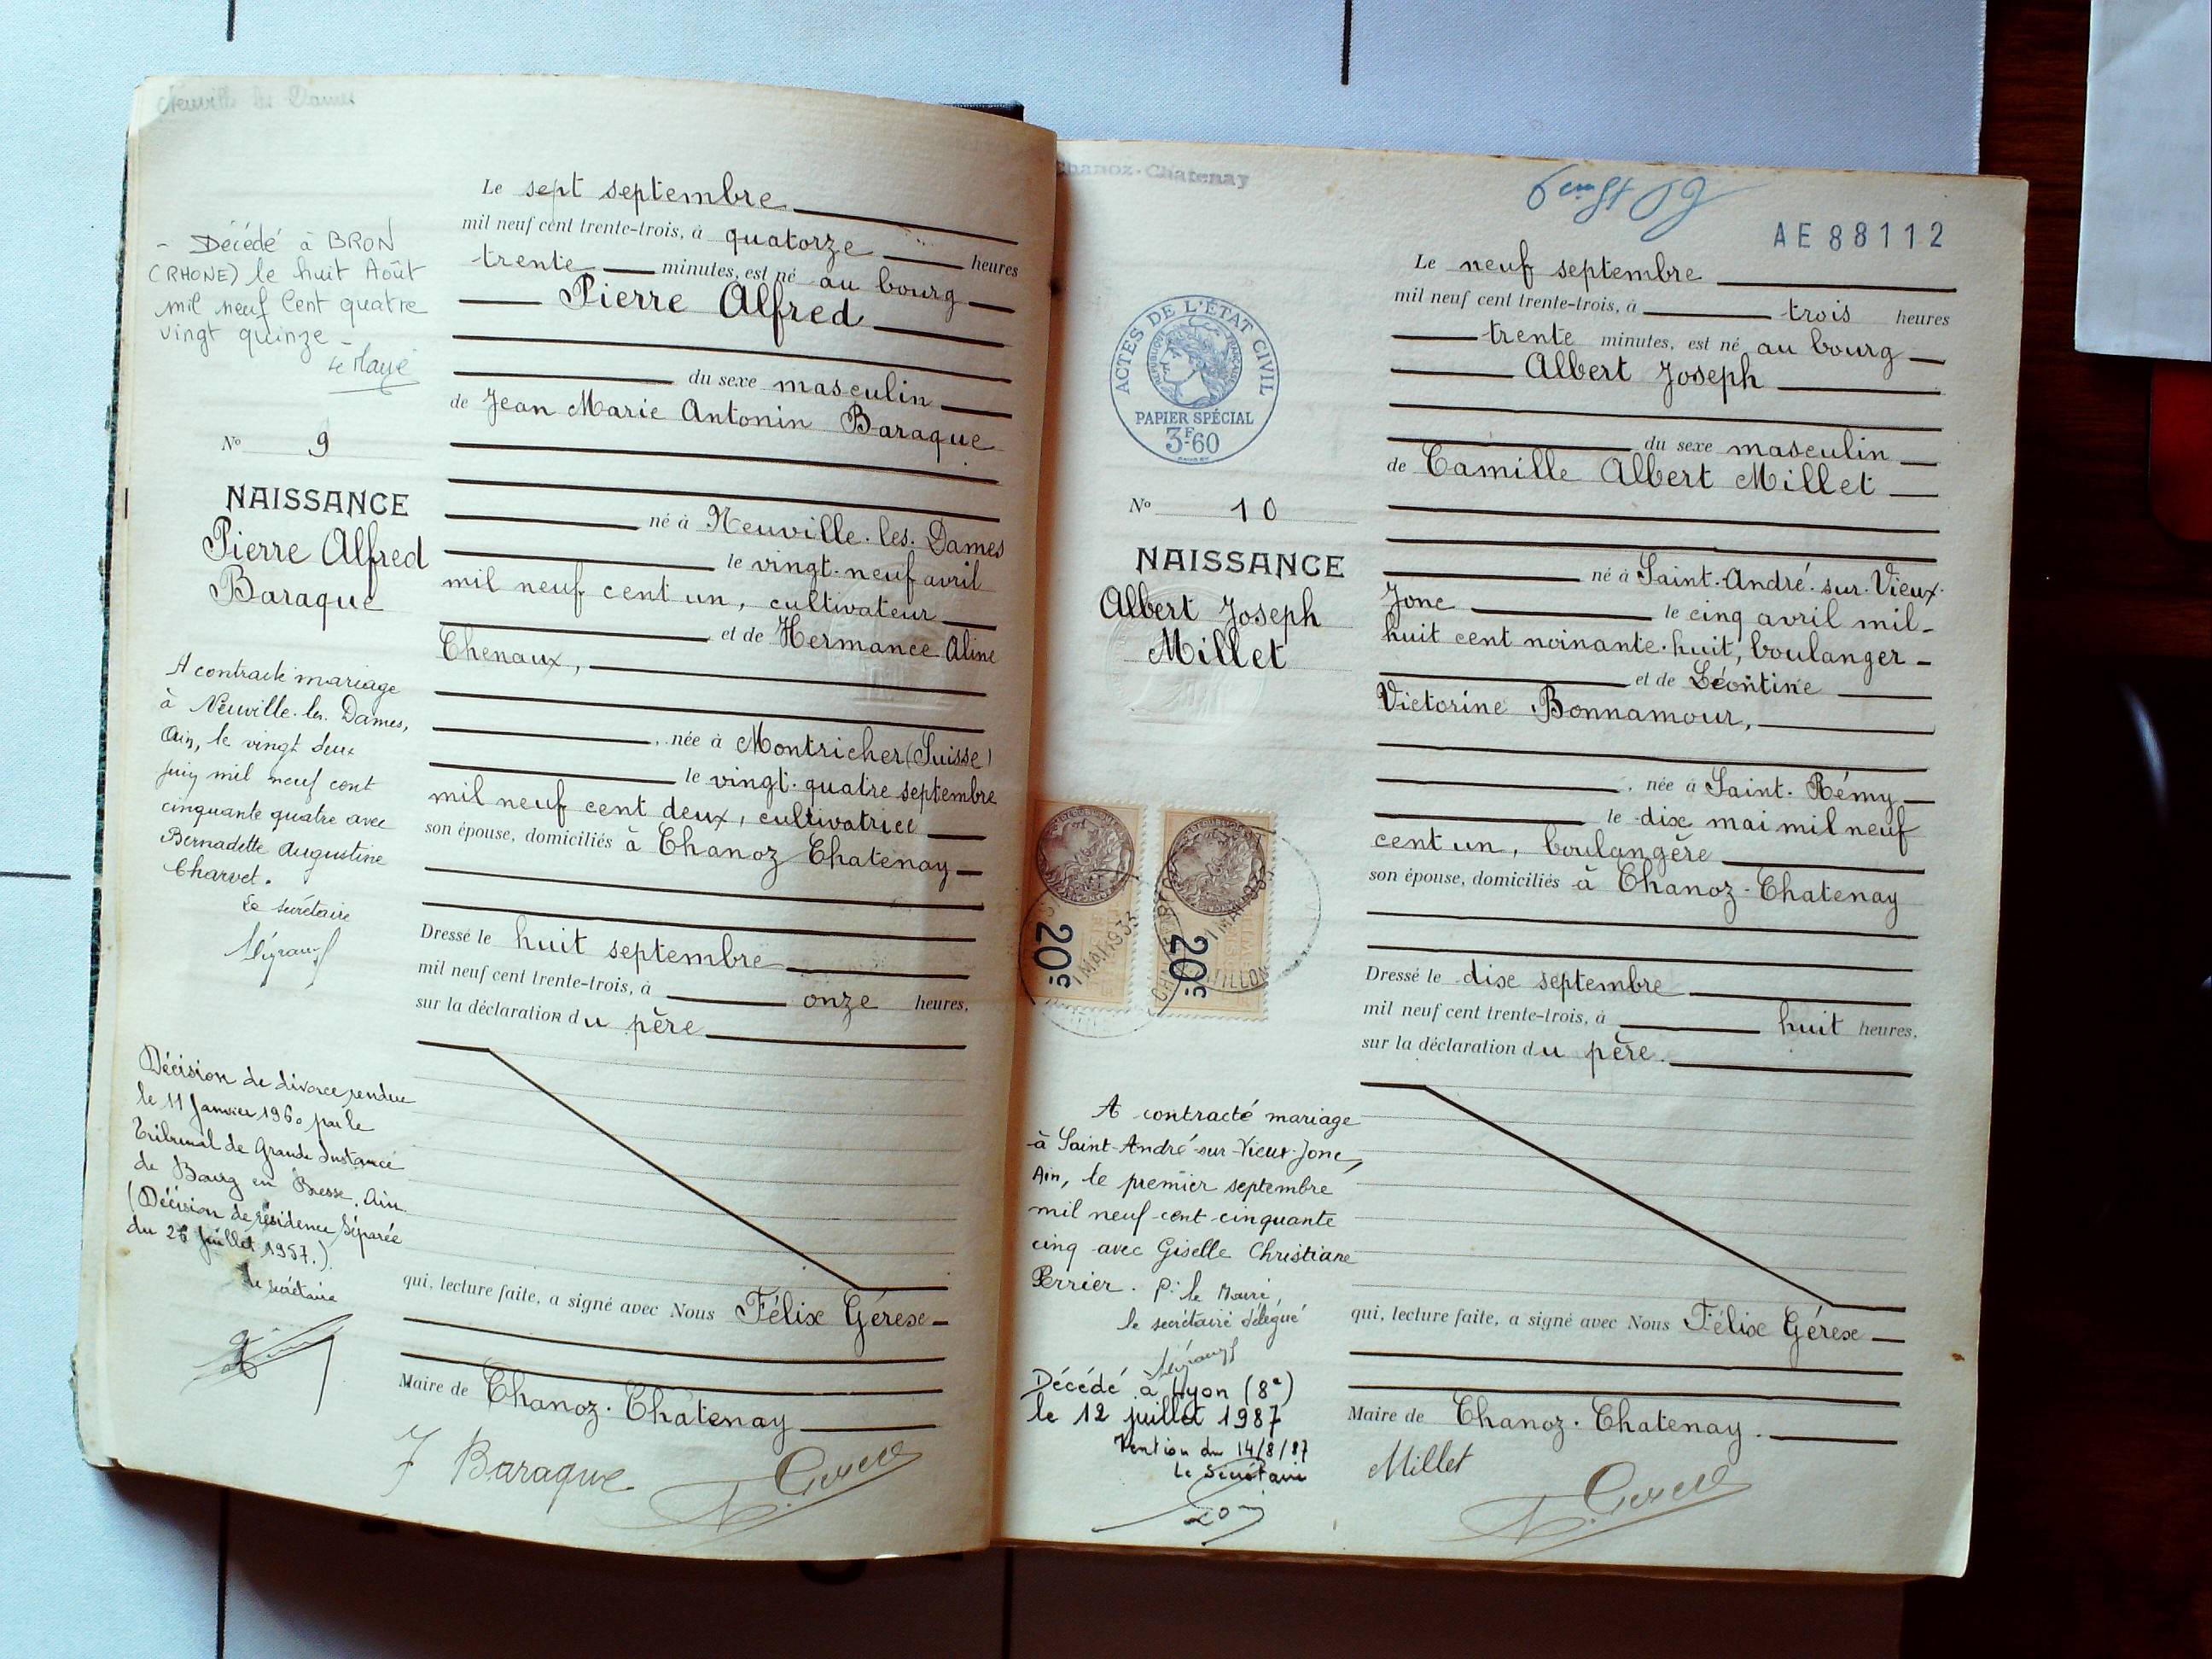 Neuville les Dames
- Décédé à BRON
(RHONE) le huit Août
mil neuf Cent quatre
vingt quinze -
Le Maire
N° 9
NAISSANCE
Pierre Alfred
Baraque
A contracté mariage
à Neuville-les-Dames,
Ain, le vingt deux
juin mil neuf cent
cinquante quatre avec
Bernadette Augustine
Charvet.
Le secrétaire
Décision de divorce rendue
le 11 Janvier 1960 par le
Tribunal de Grande Instance
de Bourg en Bresse, Ain.
(Décision de résidence séparée
du 26 juillet 1957.)
Le secrétaire
Le sept septembre
mil neuf cent trente-trois, à quatorze heures
trente minutes, est né au bourg
Pierre Alfred
du sexe masculin
de Jean Marie Antonin Baraque
né à Neuville-les-Dames
le vingt-neuf avril
mil neuf cent un, cultivateur
et de Hermance Aline
Chenaux,
, née à Montricher (Suisse)
le vingt-quatre septembre
mil neuf cent deux, cultivatrice
son épouse, domiciliés à Chanoz Chatenay
Dressé le huit septembre
mil neuf cent trente-trois, à onze heures,
sur la déclaration du père
qui, lecture faite, a signé avec Nous Félix Gérese
Maire de Chanoz-Chatenay
J Baraque
Chanoz-Chatenay
AE 88112
ACTES DE L'ÉTAT CIVIL
PAPIER SPÉCIAL
3F60
N° 10
NAISSANCE
Albert Joseph
Millet
20c
1 MAI 1933
20c
A contracté mariage
à Saint-André-sur-Vieux-Jonc,
Ain, le premier septembre
mil neuf cent cinquante
cinq avec Giselle Christiane
Perrier. P. le Maire,
le secrétaire délégué
Décédé à Lyon (8e)
le 12 juillet 1987
Mention du 14/8/87
Le Secrétaire
Le neuf septembre
mil neuf cent trente-trois, à trois heures
trente minutes, est né au bourg
Albert Joseph
du sexe masculin
de Camille Albert Millet
né à Saint-André-sur-Vieux-
Jonc le cinq avril mil-
huit cent noinante-huit, boulanger
et de Léontine
Victorine Bonnamour,
, née à Saint-Rémy
le dix mai mil neuf
cent un, boulangère
son épouse, domiciliés à Chanoz-Chatenay
Dressé le dix septembre
mil neuf cent trente-trois, à huit heures,
sur la déclaration du père.
qui, lecture faite, a signé avec Nous Félix Gérese
Maire de Chanoz-Chatenay.
Millet